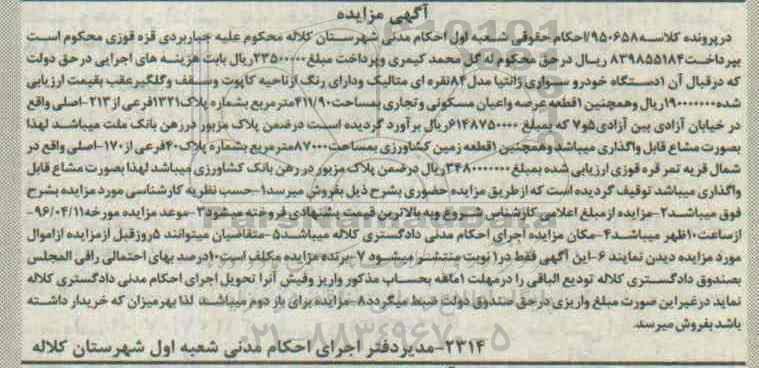 آگهی مزایده
درپرونده کلاسه۹۵۰۶۵۸/احکام حقوقی شعبه اول احکام مدنی شهرستان کلاله محکوم علیه جباربردی قزه قوزی محکوم است
بپرداخت۸۳۹۸۵۵۱۸۴ ریال درحق محکوم له گل محمد کیمری وپرداخت مبلغ۲۳۵۰۰۰۰۰ریال بابت هزینه های اجرایی درحق دولت
که درقبال آن ۱دستگاه خودرو سواری زانتیا مدل۸۴نقره ای متالیک ودارای رنگ ازناحیه کاپوت وسقف وگلگیرعقب بقیمت ارزیابی
شده۱۹۰۰۰۰۰۰۰ریال وهمچنین ۱قطعه عرصه واعیان مسکونی وتجاری بمساحت۴۱۱/۹۰مترمربع بشماره پلاک۱۳۲۱فرعی از۲۱۳-اصلی واقع
در خیابان آزادی بین آزادی۵و۷ که بمبلغ ۶۱۴۸۷۵۰۰۰۰ریال برآورد گردیده است درضمن پلاک مزبور دررهن بانک ملت میباشد لهذا
بصورت مشاع قابل واگذاری میباشد وهمچنین ۱قطعه زمین کشاورزی بمساحت۸۷۰۰۰مترمربع بشماره پلاک۴۰فرعی از۱۷۰-اصلی واقع در
شمال قریه تمر قره قوزی ارزیابی شده بمبلغ۳۴۸۰۰۰۰۰۰۰ریال درضمن پلاک مزبور در رهن بانک کشاورزی میباشد لهذا بصورت مشاع قابل
واگذاری میباشد توقیف گردیده است که ازطریق مزایده حضوری بشرح ذیل بفروش میرسد۱-حسب نظریه کارشناسی مورد مزایده بشرح
فوق میباشد۲-مزایده ازمبلغ اعلامی کارشناس شروع وبه بالاترین قیمت پیشنهادی فروخته میشود۳-موعد مزایده مورخه۹۶/۰۴/۱۱-
ازساعت۱۰ظهر میباشد۴-مکان مزایده اجرای احکام مدنی دادگستری کلاله میباشد۵-متقاضیان میتوانند ۵روزقبل ازمزایده ازاموال
مورد مزایده دیدن نمایند ۶-این آگهی فقط در۱ نوبت منتشر میشود ۷-برنده مزایده مکلف است۱۰درصد بهای احتمالی رافی المجلس
بصندوق دادگستری کلاله تودیع الباقی را درمهلت ۱ماهه بحساب مذکور واریز وفیش آنرا تحویل اجرای احکام مدنی دادگستری کلاله
نماید درغیراین صورت مبلغ واریزی درحق صندوق دولت ضبط میگردد۸-مزایده برای بار دوم میباشد لذا بهرمیزان که خریدار داشته
باشد بفروش میرسد.
۲۳۱۴-مدیردفتر اجرای احکام مدنی شعبه اول شهرستان کلاله
۰۲۱-۸۸۳۴۹۶۷۰-۵